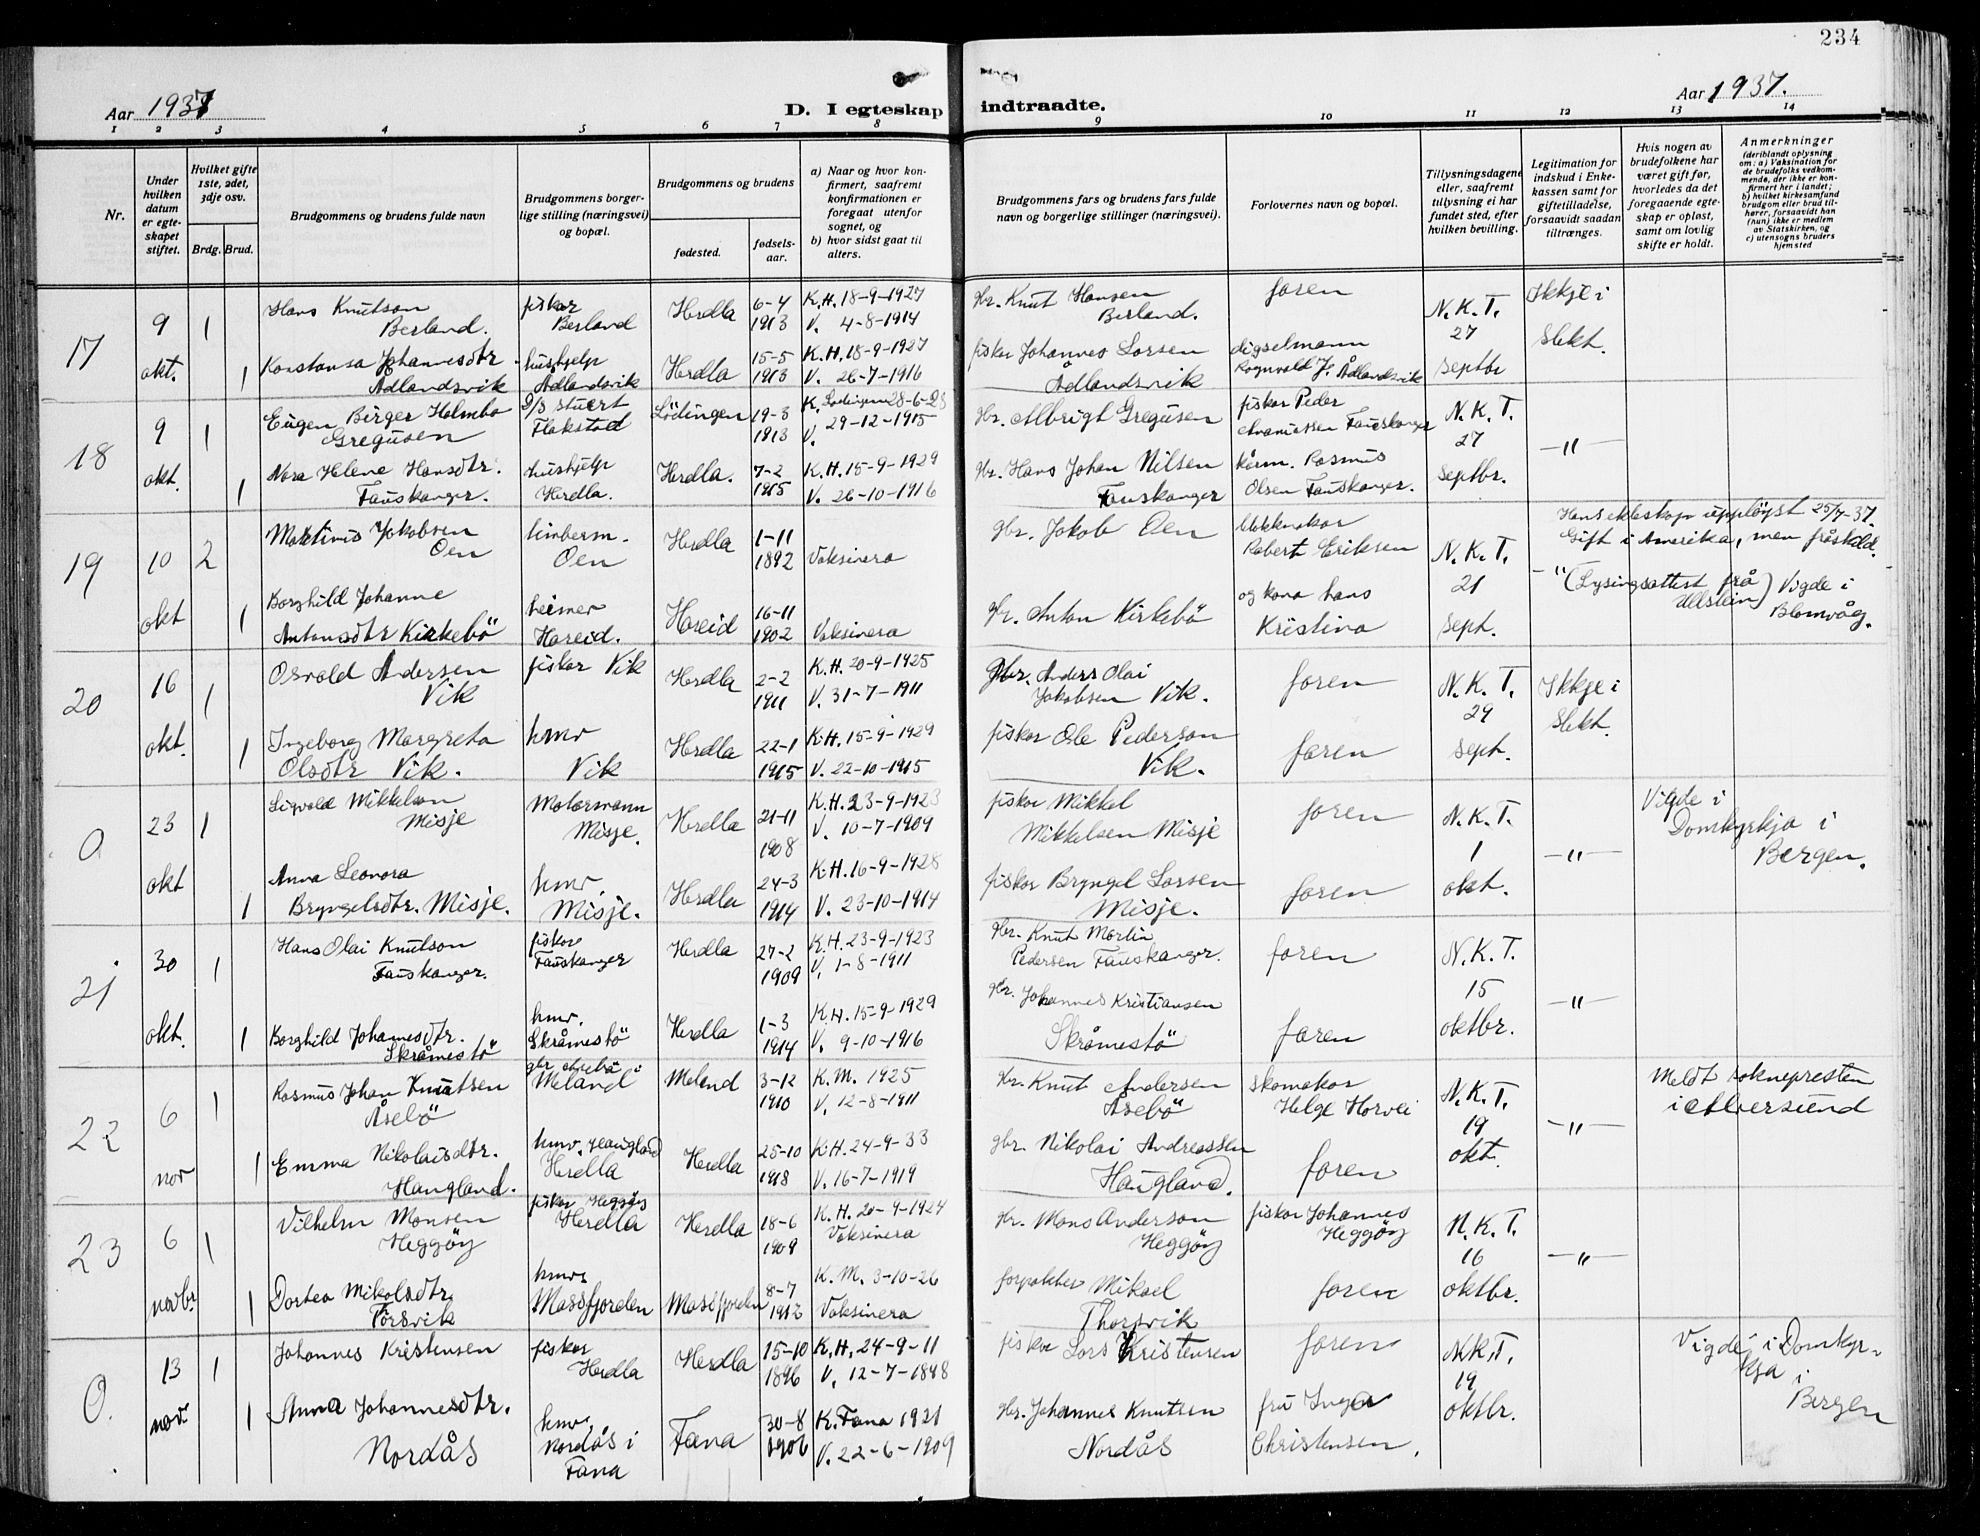 234
Aar 1937
D. I egteskap indtraadte.
Aar 1937.
1 2 3 4 5 6 7 8 9 10 11 12 13 14
Nr.
Under hvilken datum er egteskapet stiftet.
Hvilket gifte 1ste, 2det, 3dje osv.
Brdg. Brud.
Brudgommens og brudens fulde navn
Brudgommens og brudens borgerlige stilling (næringsvei) og bopæl.
Brudgommens og brudens
fødested.
fødselsaar.
a) Naar og hvor konfirmert, saafremt konfirmationen er foregaat utenfor sognet, og
b) hvor sidst gaat til alters.
Brudgommens fars og brudens fars fulde navn og borgerlige stillinger (næringsvei).
Forlovernes navn og bopæl.
Tillysningsdagene eller, saafremt tillysning ei har fundet sted, efter hvilken bevilling.
Legitimation for indskud i Enkekassen samt for giftetilladelse, forsaavidt saadan tiltrænges.
Hvis nogen av brudefolkene har været gift før, hvorledes da det foregaaende egteskap er opløst, samt om lovlig skifte er holdt.
Anmerkninger
(deriblandt oplysning om: a) Vaksination for de brudefolks vedkommende, der ikke er konfirmert her i landet; b) hvilket kirkesamfund brudgom eller brud tilhører, forsaavidt han (hun) ikke er medlem av Statskirken, og c) utensogns bruders hjemsted
17 9 okt. 1 Hans Knutson Berland. fiskar Berland Herdla 6-4 1913 K.H. 18-9-1927 V. 4-8-1914 gbr. Knut Hansen Berland. faren N.K.T. 27 septbr Ikkje i slekt.
1 Konstansa Johannesdtr Ådlandsvik hushjelp Ådlandsvik Herdla 15-5 1913 K.H. 18-9-1927 V. 26-7-1916 fiskar Johannes Larsen Ådlandsvik Rognvald J. Ådlandsvik
18 9 okt. 1 Eugen Birger Holmbo Gregusen D/S stuert Flakstad Lödingen 19-3 1913 K. Lødingen 28-6-28 V. 29-12-1915 gbr. Albrigt Gregusen fiskar Peder Fauskanger N.K.T. 27 septbr. —"—
1 Nora Helene Hansdtr. Fauskanger. hushjelp Herdla. Herdla. 7-2 1915 K.H. 15-9-1929 V. 26-10-1916 gbr. Hans Johan Nilsen Fauskanger kårm. Rasmus Olsen Fauskanger.
19 10 okt 2 Martinus Jakobsen Oen timberm. Oen Herdla 1-11 1892 Vaksinera gbr. Jakob Oen blokkmakar Robert Eriksen N.K.T. 21 sept. Hans ekteskap uppløyst 25/7-37. Gift i Amerika, men fråskild.
1 Borghild Johanne Antonsdtr Kirkebö heimev Hareid. Hareid 16-11 1902 Vaksinera gbr. Anton Kirkebö og kona hans Kristina —"— (Lysingsattest frå Ulstein) Vigde i Blomvåg.
20 16 okt. 1 Osvald Andersen Vik fiskar Vik Herdla 2-2 1911 K.H. 20-9-1925 V. 31-7-1911 gbr. Anders Olai Jakobsen Vik. faren N.K.T. 29 sept. Ikkje i slekt.
1 Ingeborg Margreta Olsdtr Vik. hmv Vik Herdla 22-1 1915 K.H. 15-9-1929 V. 22-10-1915 fiskar Ole Pederson Vik. faren
0 23 okt 1 Sigvald Mikkelson Misje Motormann Misje. Herdla 21-11 1908 K.H. 23-9-1923 V. 10-7-1909 fiskar Mikkel Mikkelsen Misje faren N.K.T. 1 okt. —"— Vigde i Domkyrkja i Bergen.
1 Anna Leonora Bryngelsdtr. Misje. hmv Misje. Herdla 24-3 1914 K.H. 16-9-1928 V. 23-10-1914 fiskar Bryngel Larsen Misje. faren
21 30 okt. 1 Hans Olai Knutson Fauskanger. fiskar Fauskanger Herdla 27-2 1909 K.H. 23-9-1923 V. 1-8-1911 gbr. Knut Martin Pedersen Fauskanger. faren N.K.T. 15 oktbr. —"—
1 Borghild Johannesdtr. Skråmestö hmv. Skråmestö Herdla 1-3 1914 K.H. 15-9-1929 V. 9-10-1916 gbr. Johannes Kristiansen Skråmestö faren
22 6 nov 1 Rasmus Johan Knutsen Åsebö gbr Åsebö Meland Meland 3-12 1910 K.M. 1925 V. 12-8-1911 gbr. Knut Andersen Åsebö skomakar Helge Horvei N.K.T. 19 okt. —"— Meldt soknepresten i Alversund
1 Emma Nikolaisdtr. Haugland. hmv. Haugland Herdla Herdla 25-10 1918 K.H. 24-9-33 V. 16-7-1919 gbr. Nikolai Andreassen Haugland. faren
23 6 novbr. 1 Vilhelm Monsen Heggöy fiskar Heggöy Herdla Herdla 18-6 1909 K.H. 20-9-1924 Vaksinera gbr. Mons Anderson Heggöy fiskar Johannes Heggöy N.K.T. 16 oktbr. —"—
1 Dortea Mikalsdtr. Torsvik hmv. Masfjorden Masfjorden 8-7 1912 K.M. 3-10-26 Vaksinera forpakter Mikael Thorsvik faren
0. 13 nov. 1 Johannes Kristensen fiskar Herdla Herdla 15-10 1896 K.H. 24-9-11 V. 12-7-1898 fiskar Lars Kristensen faren N.K.T. 19 oktbr. Vigde i Domkyrkja i Bergen
1 Anna Johannesdtr. Nordås hmv. Nordås i Fana Fana 30-8 1906 K. Fana 1921 V. 22-6-1909 gbr. Johannes Knutsen Nordås fru Inga Christensen.